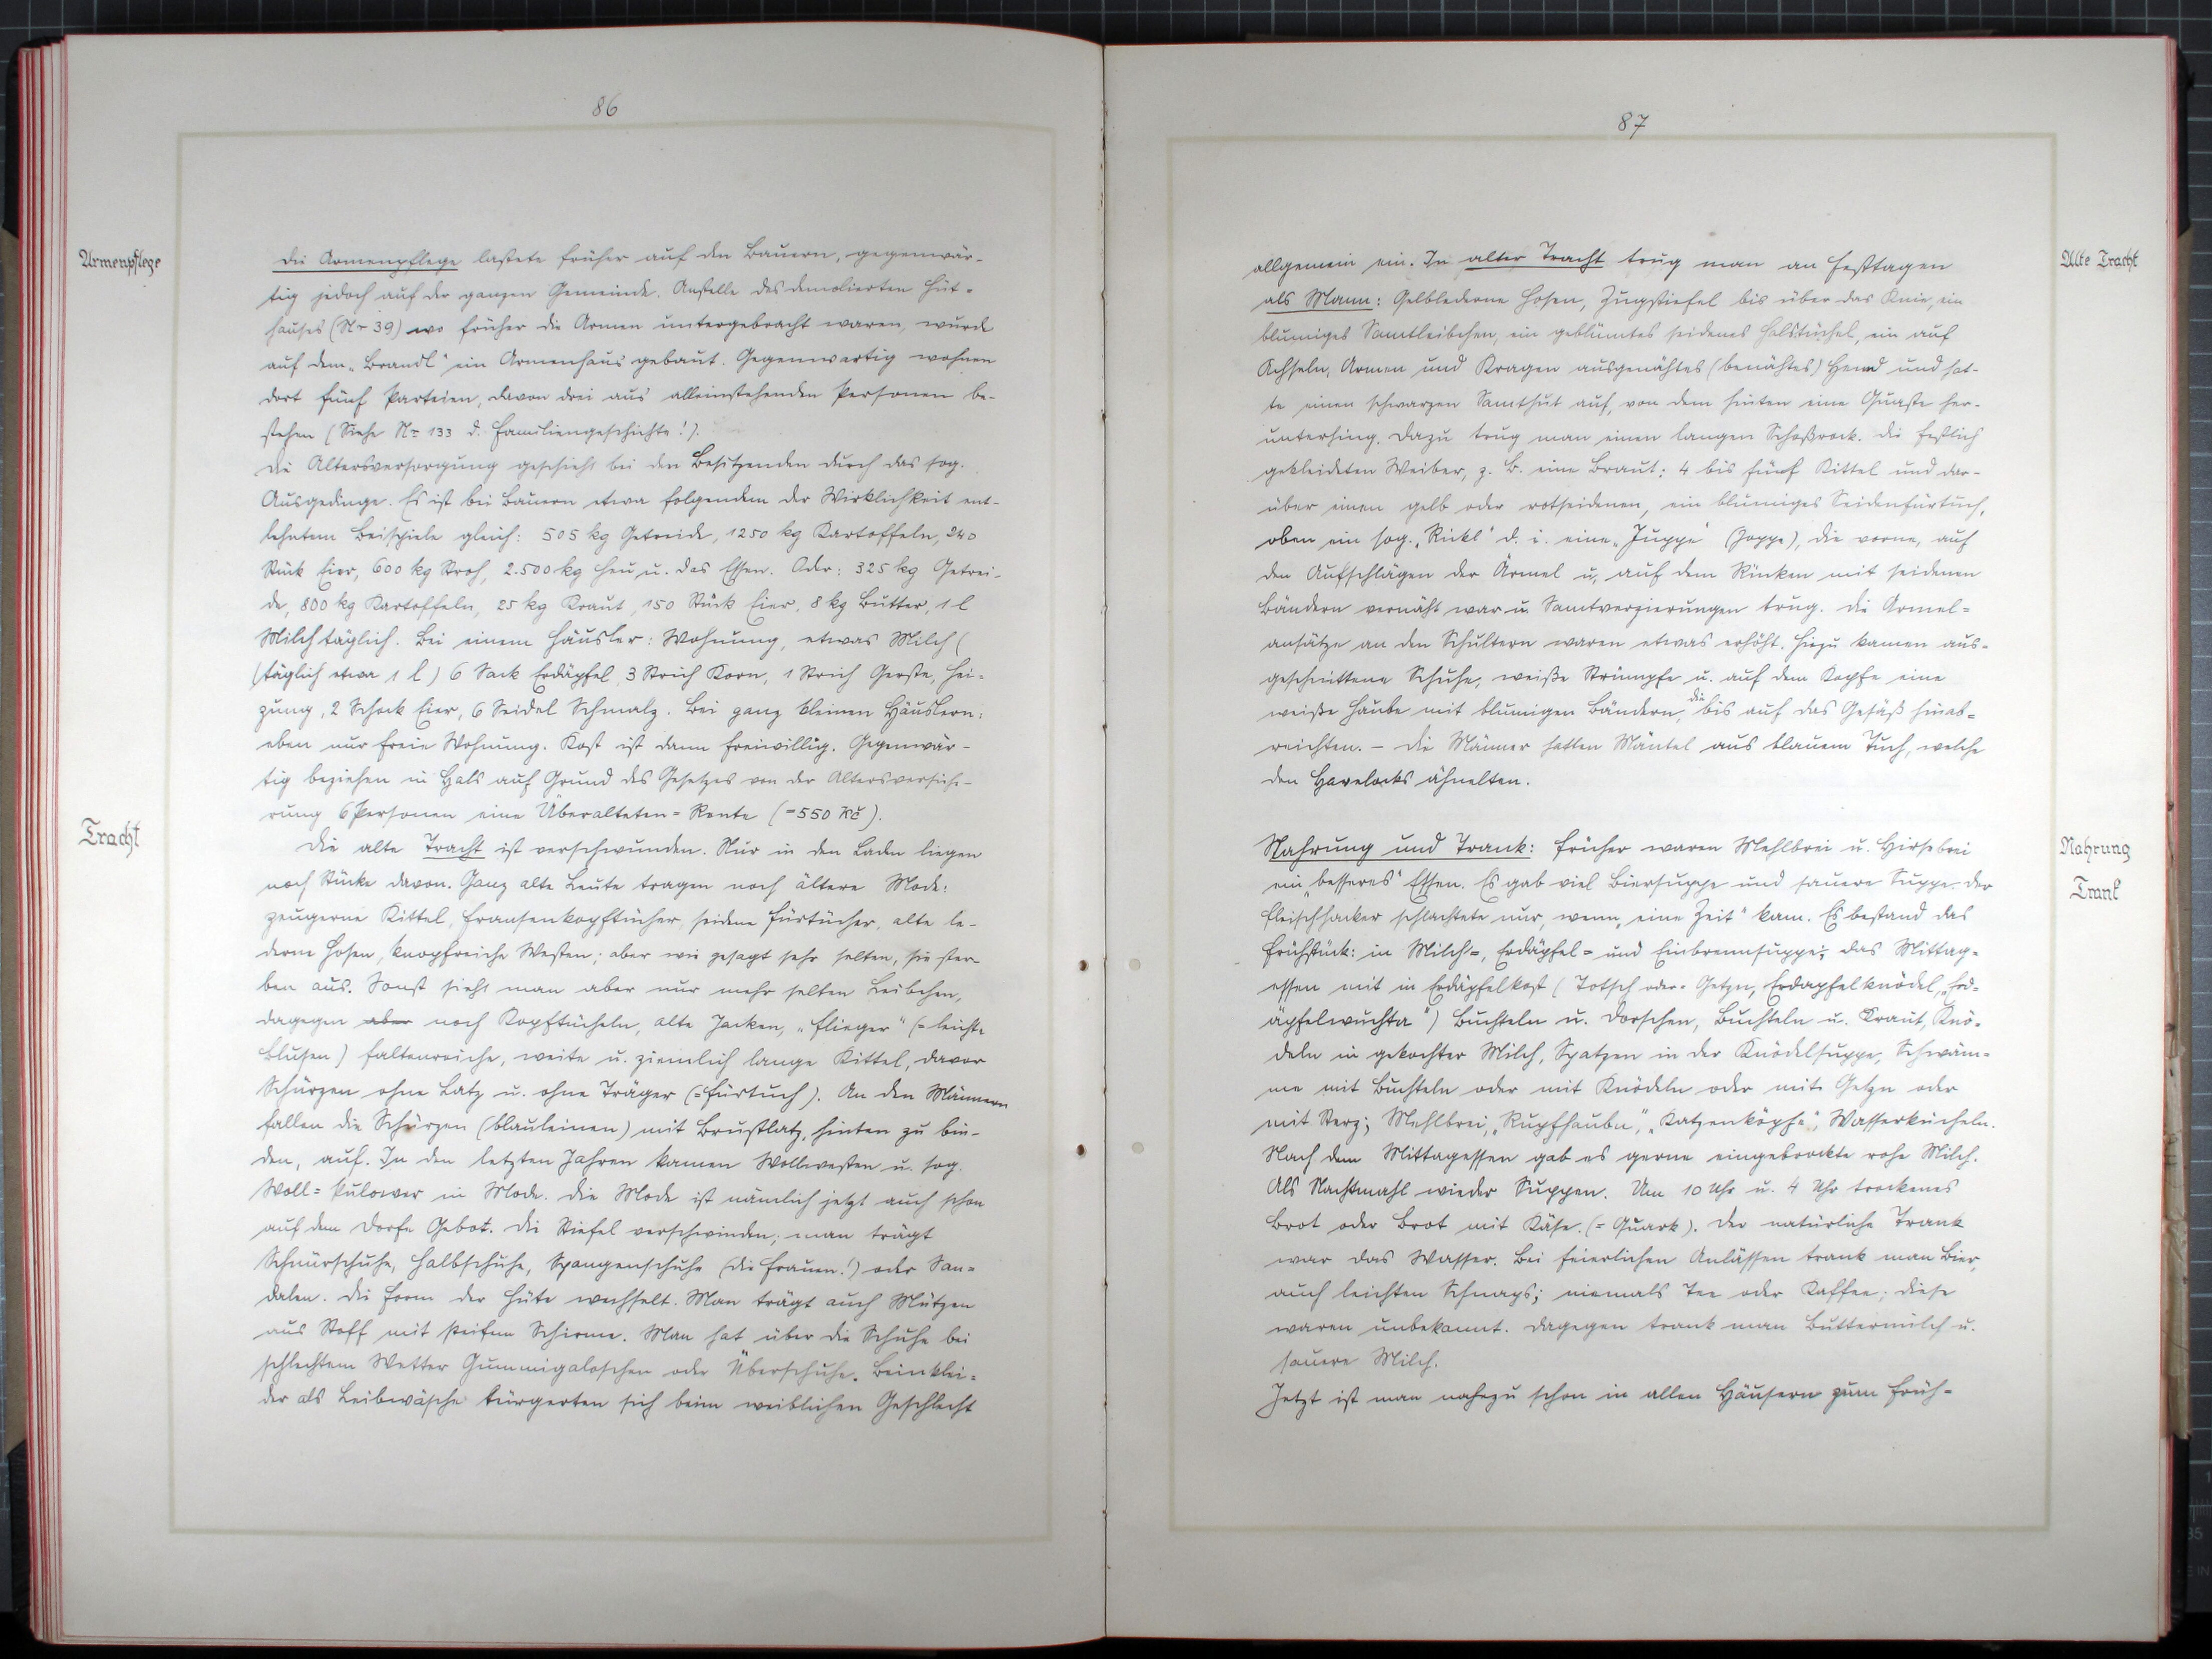 86
Armenpflege
Die Armenpflege lastete früher auf den Bauern, gegenwär-
tig jedoch auf der ganzen Gemeinde. Anstelle des demolierten Hüt-
hauses (Nr 39) wo früher die Armen untergebracht waren, wurde
auf dem „Brandl" ein Armenhaus gebaut. Gegenwertig wohnen
dort fünf Parteien, davon drei aus alleinstehenden Personen be-
stehen (Siehe Nr 133 d. Familiengeschichte!).
Die Altersversorgung geschieht bei den Besitzenden durch das sog.
Ausgedinge. Es ist bei Bauern etwa folgendem der Wirklichkeit ent-
lehntem Beispiele gleich: 505 kg Getreide, 1250 kg Kartoffeln, 240
Stück Eier, 600 kg Stroh, 2.500 kg Heu u. das Essen. Oder: 325 kg Getrei-
de, 800 kg Kartoffeln, 25 kg Kraut, 150 Stück Eier, 8 kg Butter, 1 l
Milch täglich. Bei einem Häusler: Wohnung, etwas Milch (
(täglich etwa 1 l) 6 Sack Erdäpfel, 3 Strich Korn, 1 Strich Gerste, Hei-
zung, 2 Schock Eier, 6 Seidel Schmalz. Bei ganz kleinen Häuslern:
eben nur freie Wohnung. Kost ist dann freiwillig. Gegenwär-
tig beziehen in Hals auf Grund des Gesetzes von der Altersversiche-
rung 6 Personen eine Überalteten-Rente (=550 Kč).
Tracht
Die alte Tracht ist verschwunden. Nur in den Laden liegen
noch Stücke davon. Ganz alte Leute tragen noch ältere Mode:
zeugerne Kittel, Fransenkopftücher, seidene Fürtücher, alte le-
derne Hosen, knopfreiche Westen; aber wie gesagt sehr selten, sie ster-
ben aus. Sonst sieht man aber nur mehr selten Leibchen,
dagegen aber noch Kopftücheln, alte Jacken, „Flieger" (= leichte
Blusen) faltenreiche, weite u. ziemlich lange Kittel, davor
Schürzen ohne Latz u. ohne Träger (=Fürtuch). An den Männern
fallen die Schürzen (blauleinen) mit Brustlatz, hinten zu bin-
den, auf. In den letzten Jahren kamen Wollwesten u. sog.
Woll-Pulower in Mode. Die Mode ist nämlich jetzt auch schon
auf dem Dorfe Gebot. Die Stiefel verschwinden; man trägt
Schnürschuhe, Halbschuhe, Spangenschuhe (die Frauen!) oder San-
dalen. Die Form der Hüte wechselt. Man trägt auch Mützen
aus Stoff mit steifem Schirme. Man hat über die Schuhe bei
schlechtem Wetter Gummigaloschen oder Überschuhe. Beinklei-
der als Leibwäsche bürgerten sich beim weiblichen Geschlecht
87
Alte Tracht
allgemein ein. In alter Tracht trug man an Festtagen
als Mann: Gelblederne Hosen, Zugstiefel bis über das Knie, ein
blumiges Samtleibchen, ein geblümtes seidenes Halstüchel, ein auf
Achseln, Armen und Kragen ausgenähtes (benähtes) Hemd und hat-
te einen schwarzen Samthut auf, von dem hinten eine Quaste her-
unterhing. Dazu trug man einen langen Schoßrock. Die festlich
gekleideten Weiber, z. B. eine Braut: 4 bis fünf Kittel und dar-
über einen gelb oder rotseidenen, ein blumiges Seidenfürtuch,
oben ein sog. „Rickl" d. i. eine „Juppe" (Joppe), die vorne, auf
den Aufschlägen der Ärmel u. auf dem Rücken mit seidenen
Bändern vernäht war u. Samtverzierungen trug. Die Ärmel-
ansätze an den Schultern waren etwas erhöht. Hiezu kamen aus-
geschnittene Schuhe, weiße Strümpfe u. auf dem Kopfe eine
weiße Haube mit blumigen Bändern, die bis auf das Gesäß hinab-
reichten. – Die Männer hatten Mäntel aus blauem Tuch, welche
den Havelocks ähnelten.
Nahrung
Trank
Nahrung und Trank: Früher waren Mehlbrei u. Hirsebrei
ein „besseres" Essen. Es gab viel Biersuppe und sauere Suppe. Der
Fleischhacker schlachtete nur, wenn „eine Zeit" kam. Es bestand das
Frühstück: in Milch-, Erdäpfel- und Einbrennsuppe; das Mittag-
essen mit in Erdäpfelkost (Totsch oder Getzn, Erdapfelknödel, „Erd-
äpfelwuchta") Buchteln u. Dorschen, Buchteln u. Kraut, Knö-
deln in gekochter Milch, Spatzen in der Knödelsuppe, Schwäm-
me mit Buchteln oder mit Knödeln oder mit Getzn oder
mit Sterz; Mehlbrei, „Rupfhaubn", „Katzenköpfe", Wasserkücheln.
Nach dem Mittagessen gab es gerne eingebrockte rohe Milch.
Als Nachtmahl wieder Suppen. Um 10 Uhr u. 4 Uhr trockenes
Brot oder Brot mit Käse. (= Quark). Der natürliche Trank
war das Wasser. Bei feierlichen Anlässen trank man Bier,
auch leichten Schnaps; niemals Tee oder Kaffee; diese
waren unbekannt. Dagegen trank man Buttermilch u.
sauere Milch.
Jetzt ist man nahezu schon in allen Häusern zum Früh-